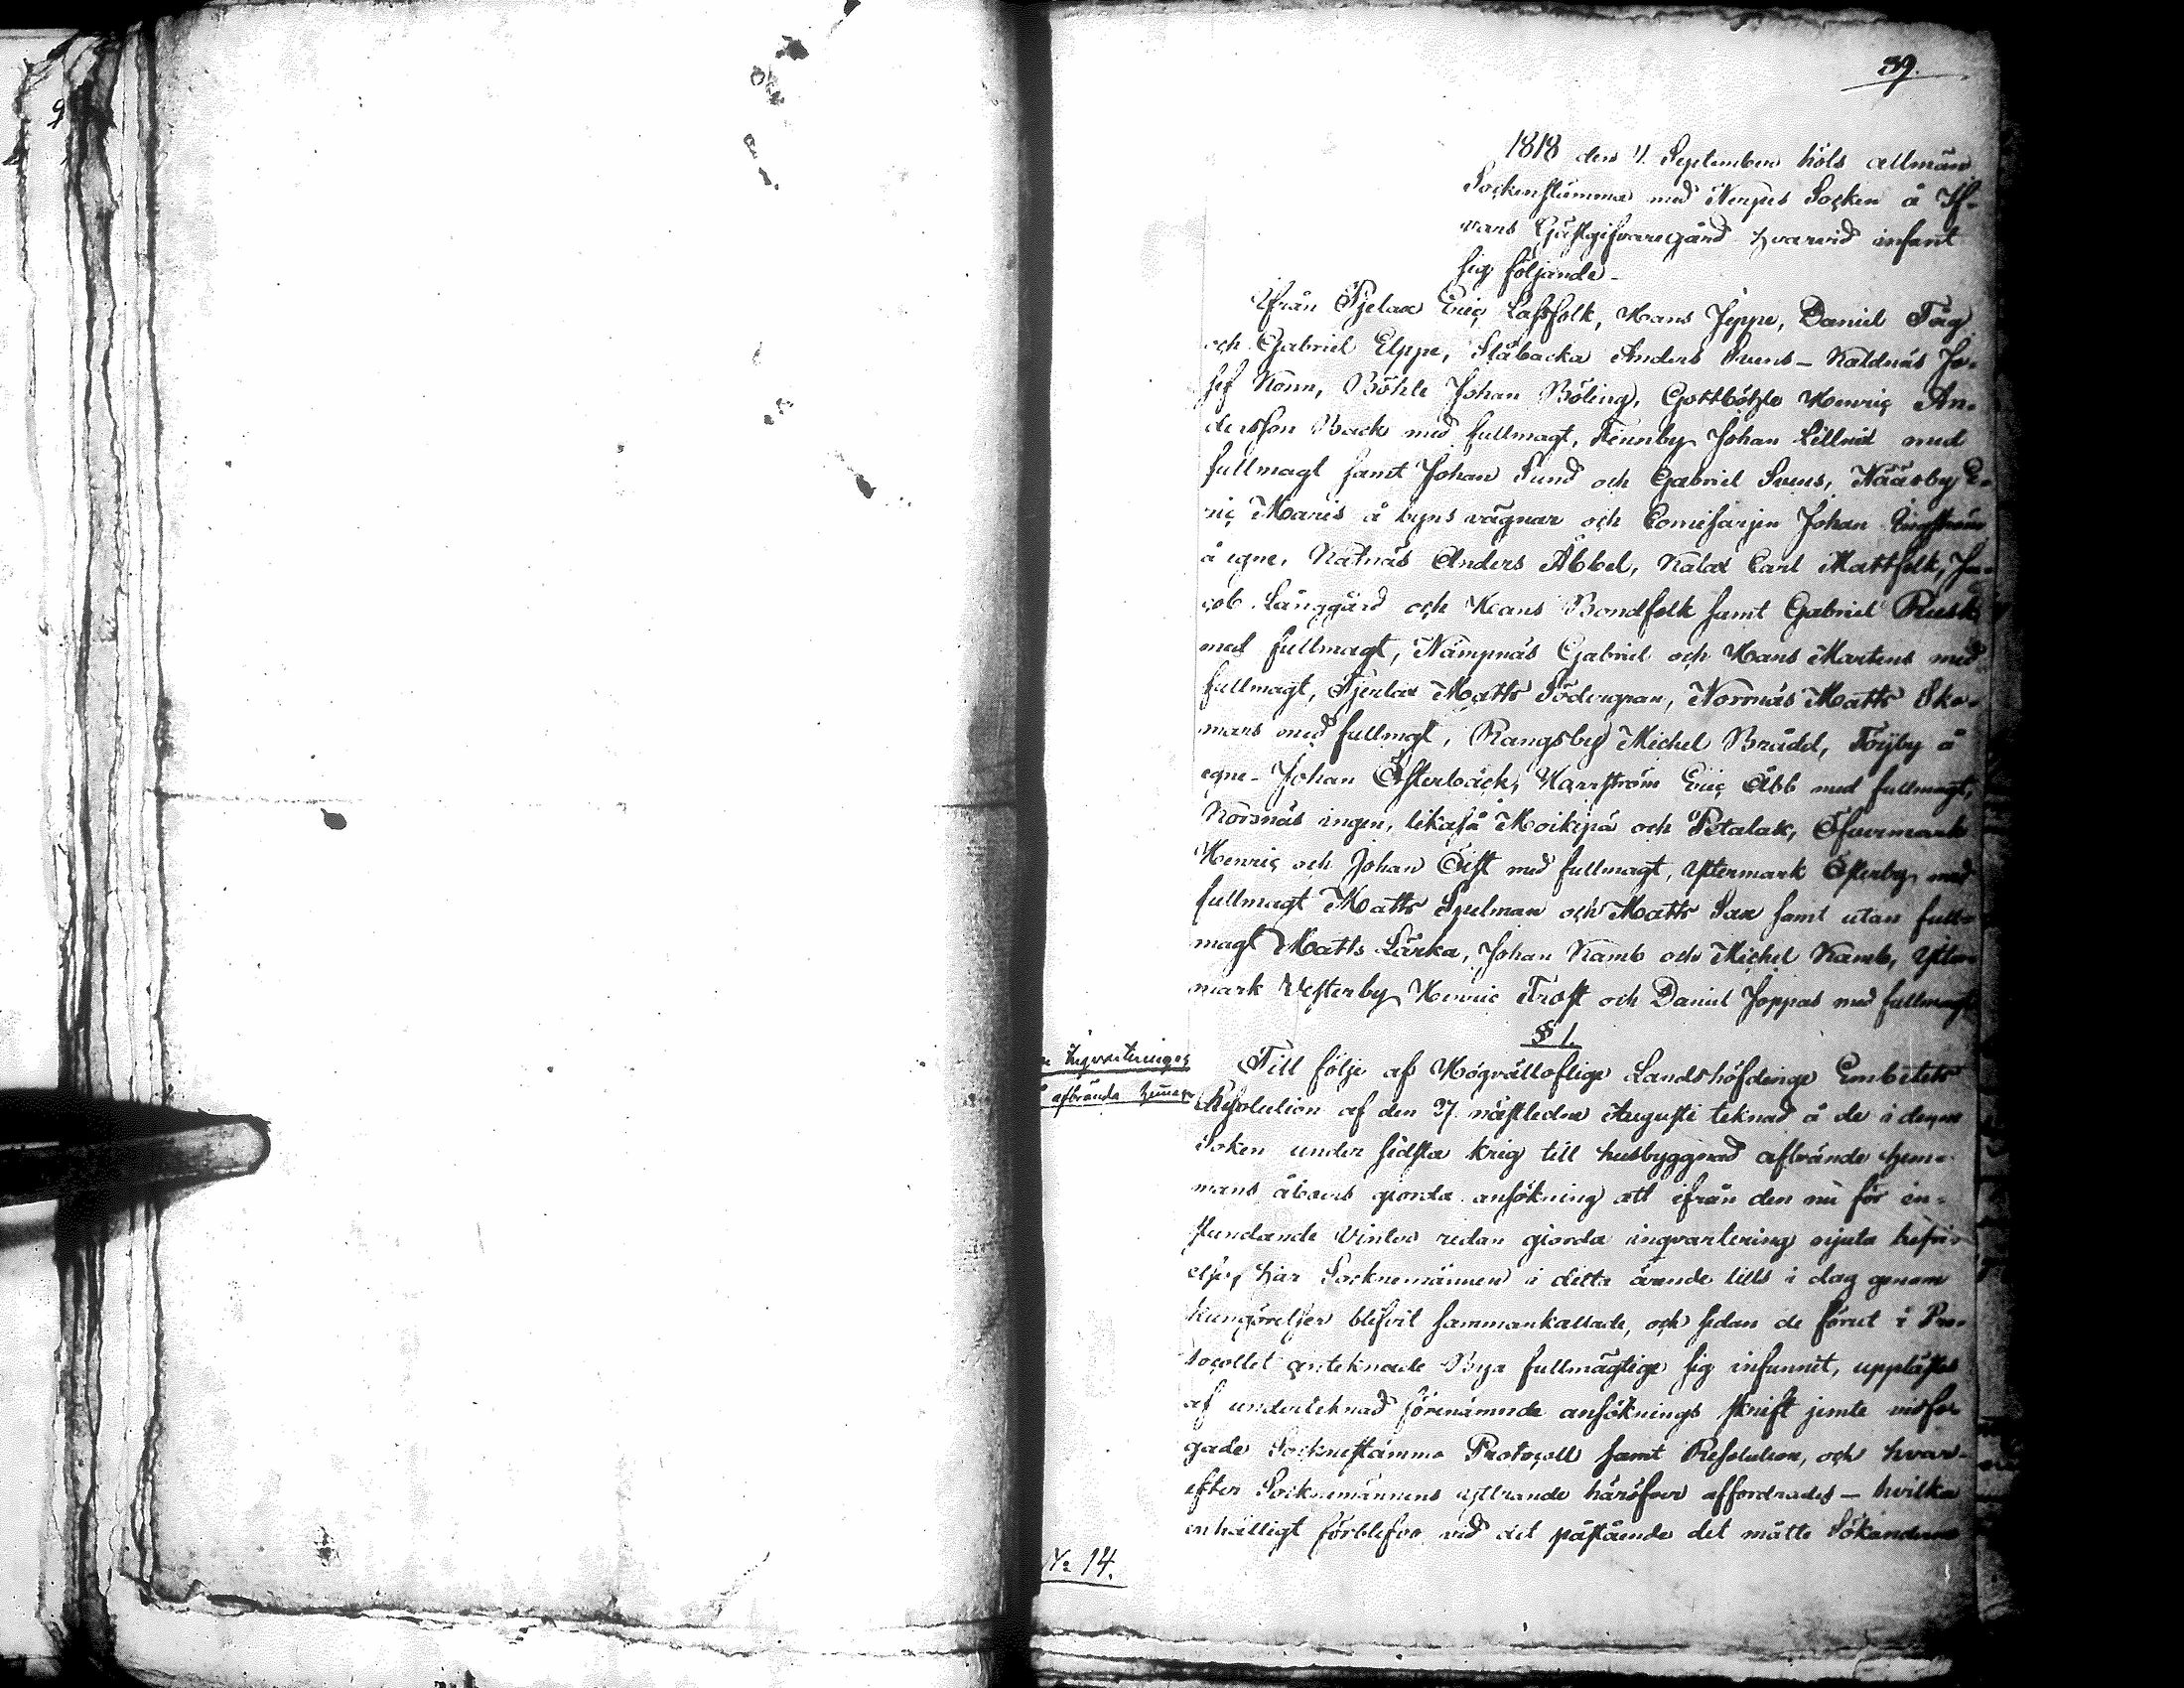 39.
1818 den 4 September höls allmän
Sockenstämma med Nerpes Socken å If-
vars Gästgifvaregård hvarvid infant
sig följande -
Ifrån Pjelax Eric Lassfolk, Hans Jeppe, Daniel Tåg
och Gabriel Elppe, Ståbacka Anders Svens - Kaldnäs Jo-
sef Konn, Böhle Johan Böling, Gottböhle Henric An-
dersson Back med fullmagt, Finnby Johan Lillrid med
fullmagt samt Johan Sund och Gabriel Svens, Nääsby E-
ric Maris å byns vägnar och Comissarien Johan
å egne, Katnäs Anders Åbbel, Kalax Carl Mattfolk, Ja-
cob Långgård och Hans Bondfolk samt Gabriel Rusk
med fullmagt, Nämpnäs Gabriel och Hans Martens med
fullmagt, Tjerlax Matts Södergran, Norrnäs Matts Sko-
mars med fullmgt, Rangsby Michel Brådd, Töjby å
egne - Johan Österback, Harrström Eric Åbb med fullmagt,
Korsnäs ingen, likaså Moikipä och Petalax, Öfvermark
Henric och Johan Öist med fullmagt, Yttermark Österby med
fullmagt Matts Spelman och Matts Sax samt utan full-
magt Matts Lärka, Johan Kamb och Michel Kamb, Ytter-
mark Vesterby Henric Trost och Daniel Joppas med fullmagt
§ 1.
Inqvarterings
afbrända hemman
Till följe af Högvälloflige Landshöfdinge Embetets
Resolution af den 27 nästledne Augusti teknad å de i denne
Soken under sidsta krig till husbyggnad afbrände hem-
mans åboers giorda ansökning att ifrån den nu för in-
stundande vinter redan giorda inqvartering niuta befri-
else, har Socknemännen i detta ärende tills i dag genom
kungörelser blifvit sammankallade, och sedan de förut i Pro-
tocollet anteknade Bya fullmägtige sig infunnit, upplästes
af underteknad förenämnde ansöknings skrift jemte vidfo-
gade Socknestämmo Protocoll samt Resolution, och hvar-
efter Socknemännens yttrande häröfver affordrades - hvilka
enhälligt förblefvo vid det påstående det måtte Sökanderne
No 14.